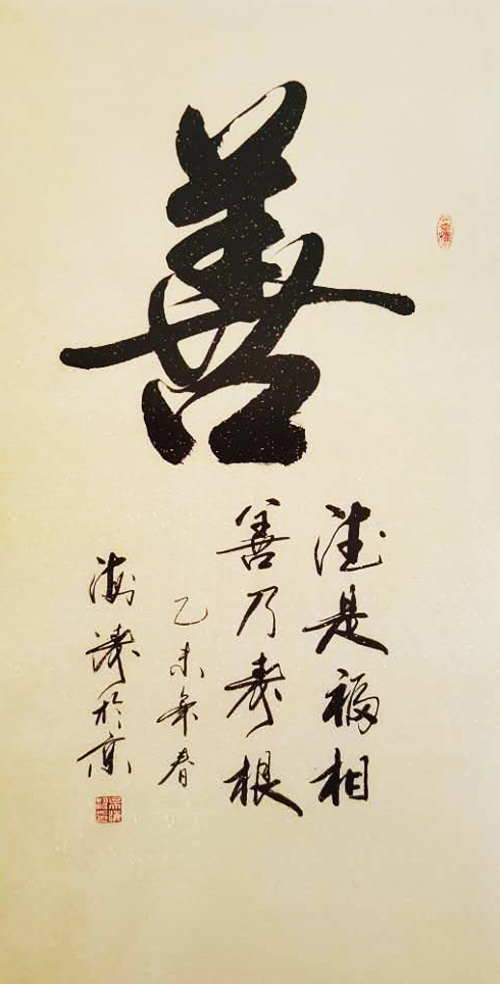 善
德是福相
善乃寿根
乙未年春
海涛於京